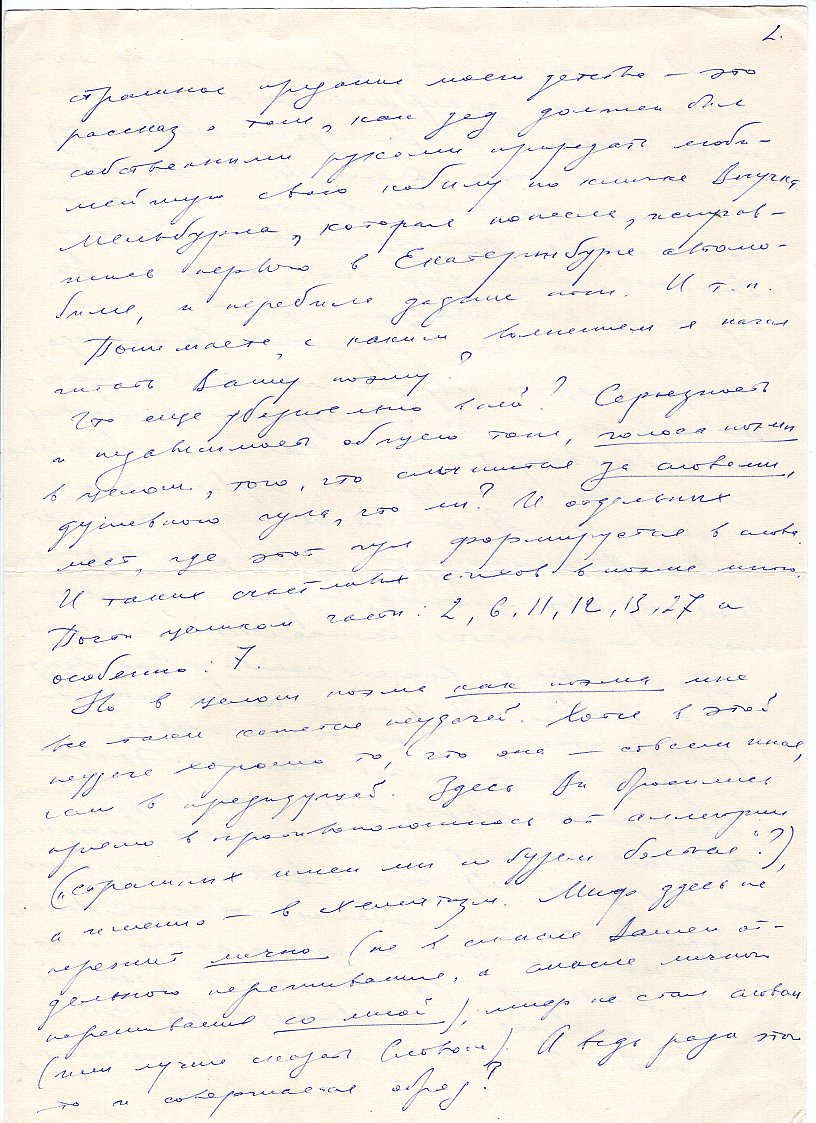 2.
страшное предание моего детства — это
рассказ о том, как дед должен был
собственными руками продать люби-
мейшую свою кобылу по кличке Внучка
Мельбурна, которая понесла, испугав-
шись первого в Екатеринбурге автомо-
биля, и перебила задние ноги. И т.п.
Понимаете, с каким волнением я начал
читать Вашу поэму?
Что еще убедительно в ней? Серьезность
и независимость общего тона, голоса поэмы
в целом, того, что слышится за словами,
душевного гула, что ли? И отдельных
мест, где этот гул формируется в слова.
И таких счастливых стихов в поэме много.
Почти целиком части: 2, 6, 11, 12, 13, 27 и
особенно: 7.
Но в целом поэма как поэма мне
все таки кажется неудачей. Хотя в этой
неудаче хорошо то, что она — совсем иная,
чем в предыдущей. Здесь Вы бросились
прямо в противоположное от аллегории
("страшных имен мы не будем "?),
а именно — в схематизм. Миф здесь не
пережит лично (не в смысле Вашего от-
дельного переживания, а в смысле личного
переживания со мной); миф не стал словом
(или лучше сказать Словом). А ведь ради этого
то и совершается обряд?